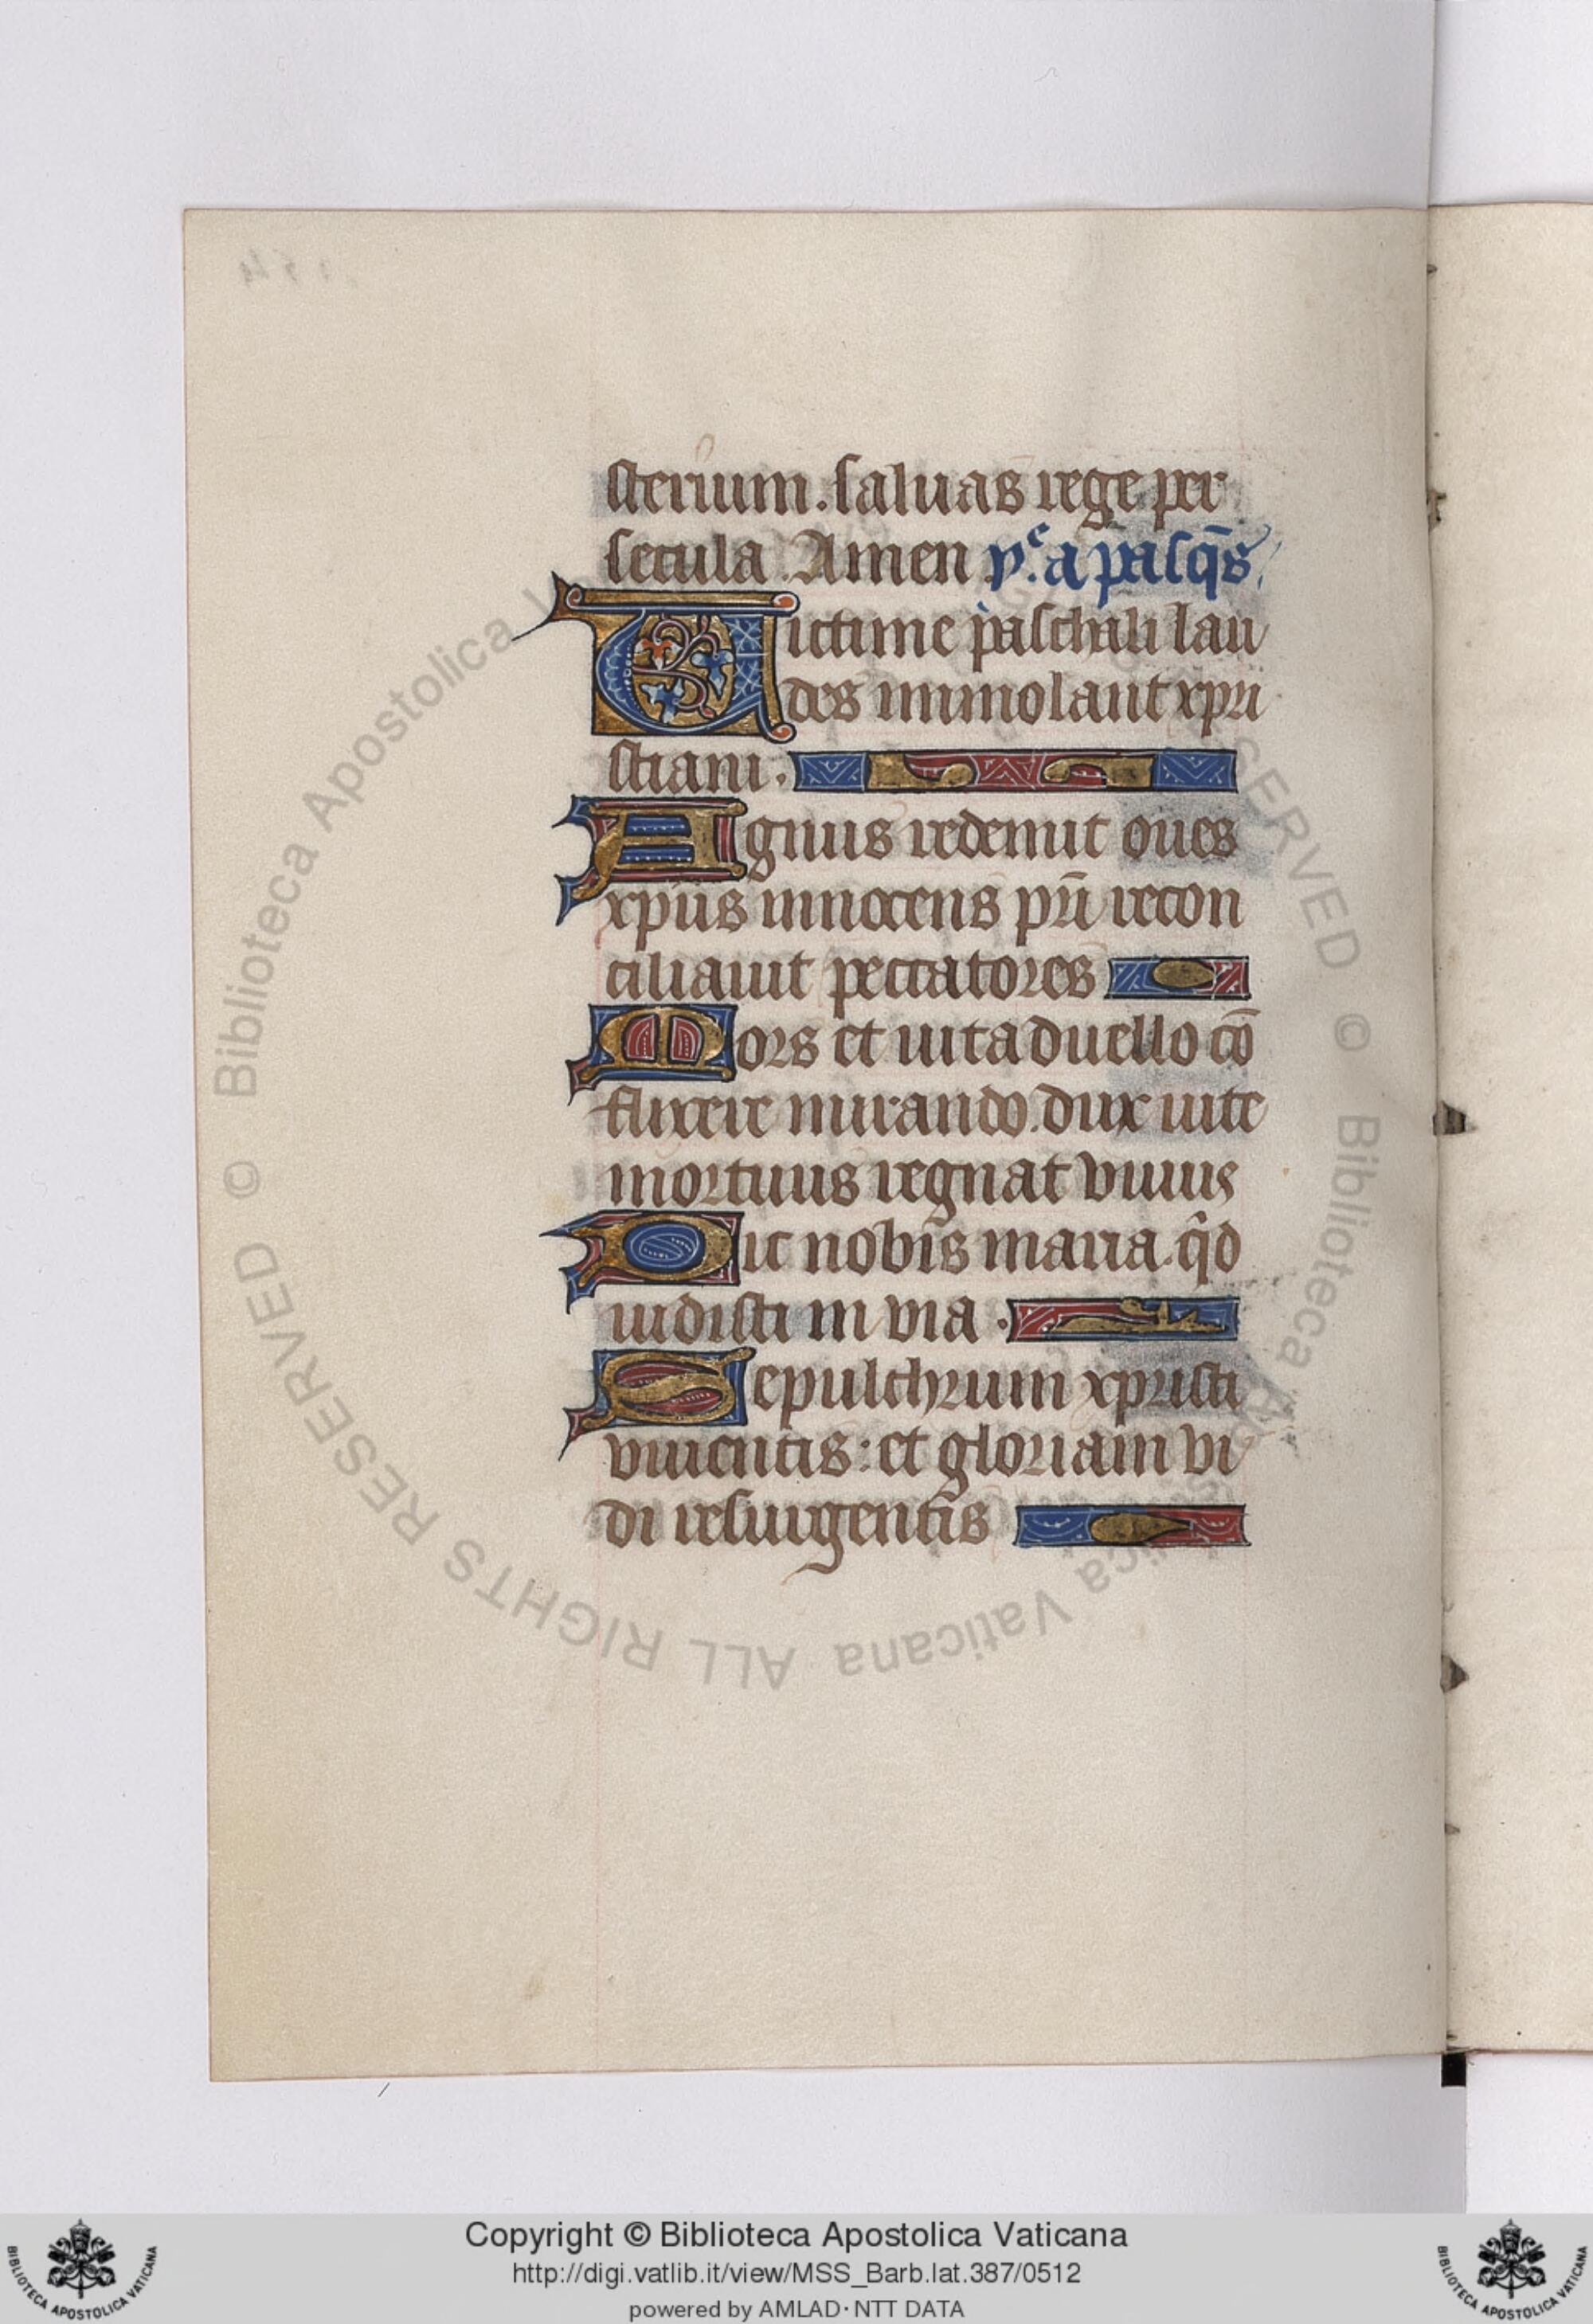 sterium. saluas rege per
secula. Amen p͛.ͨ a pasq̄s
Uictime paschali lau
des immolant xpri
stiani.
Agnus redemit oues
xpūs innocens pr̄i recon
ciliauit peccatores
Mors et uita duello cō
flixere mirando. dux uite
mortuus regnat viuus
Dic nobis maria. qͥd
uidisti in via.
Sepulchrum xpristi
viuentis: et gloriam vi
di resurgentis
© Biblioteca Apostolica Vaticana ALL RIGHTS RESERVED © Biblioteca Apostolica
Copyright © Biblioteca Apostolica Vaticana
http://digi.vatlib.it/view/MSS_Barb.lat.387/0512
powered by AMLAD · NTT DATA
BIBLIOTECA APOSTOLICA VATICANA
BIBLIOTECA APOSTOLICA VATICANA